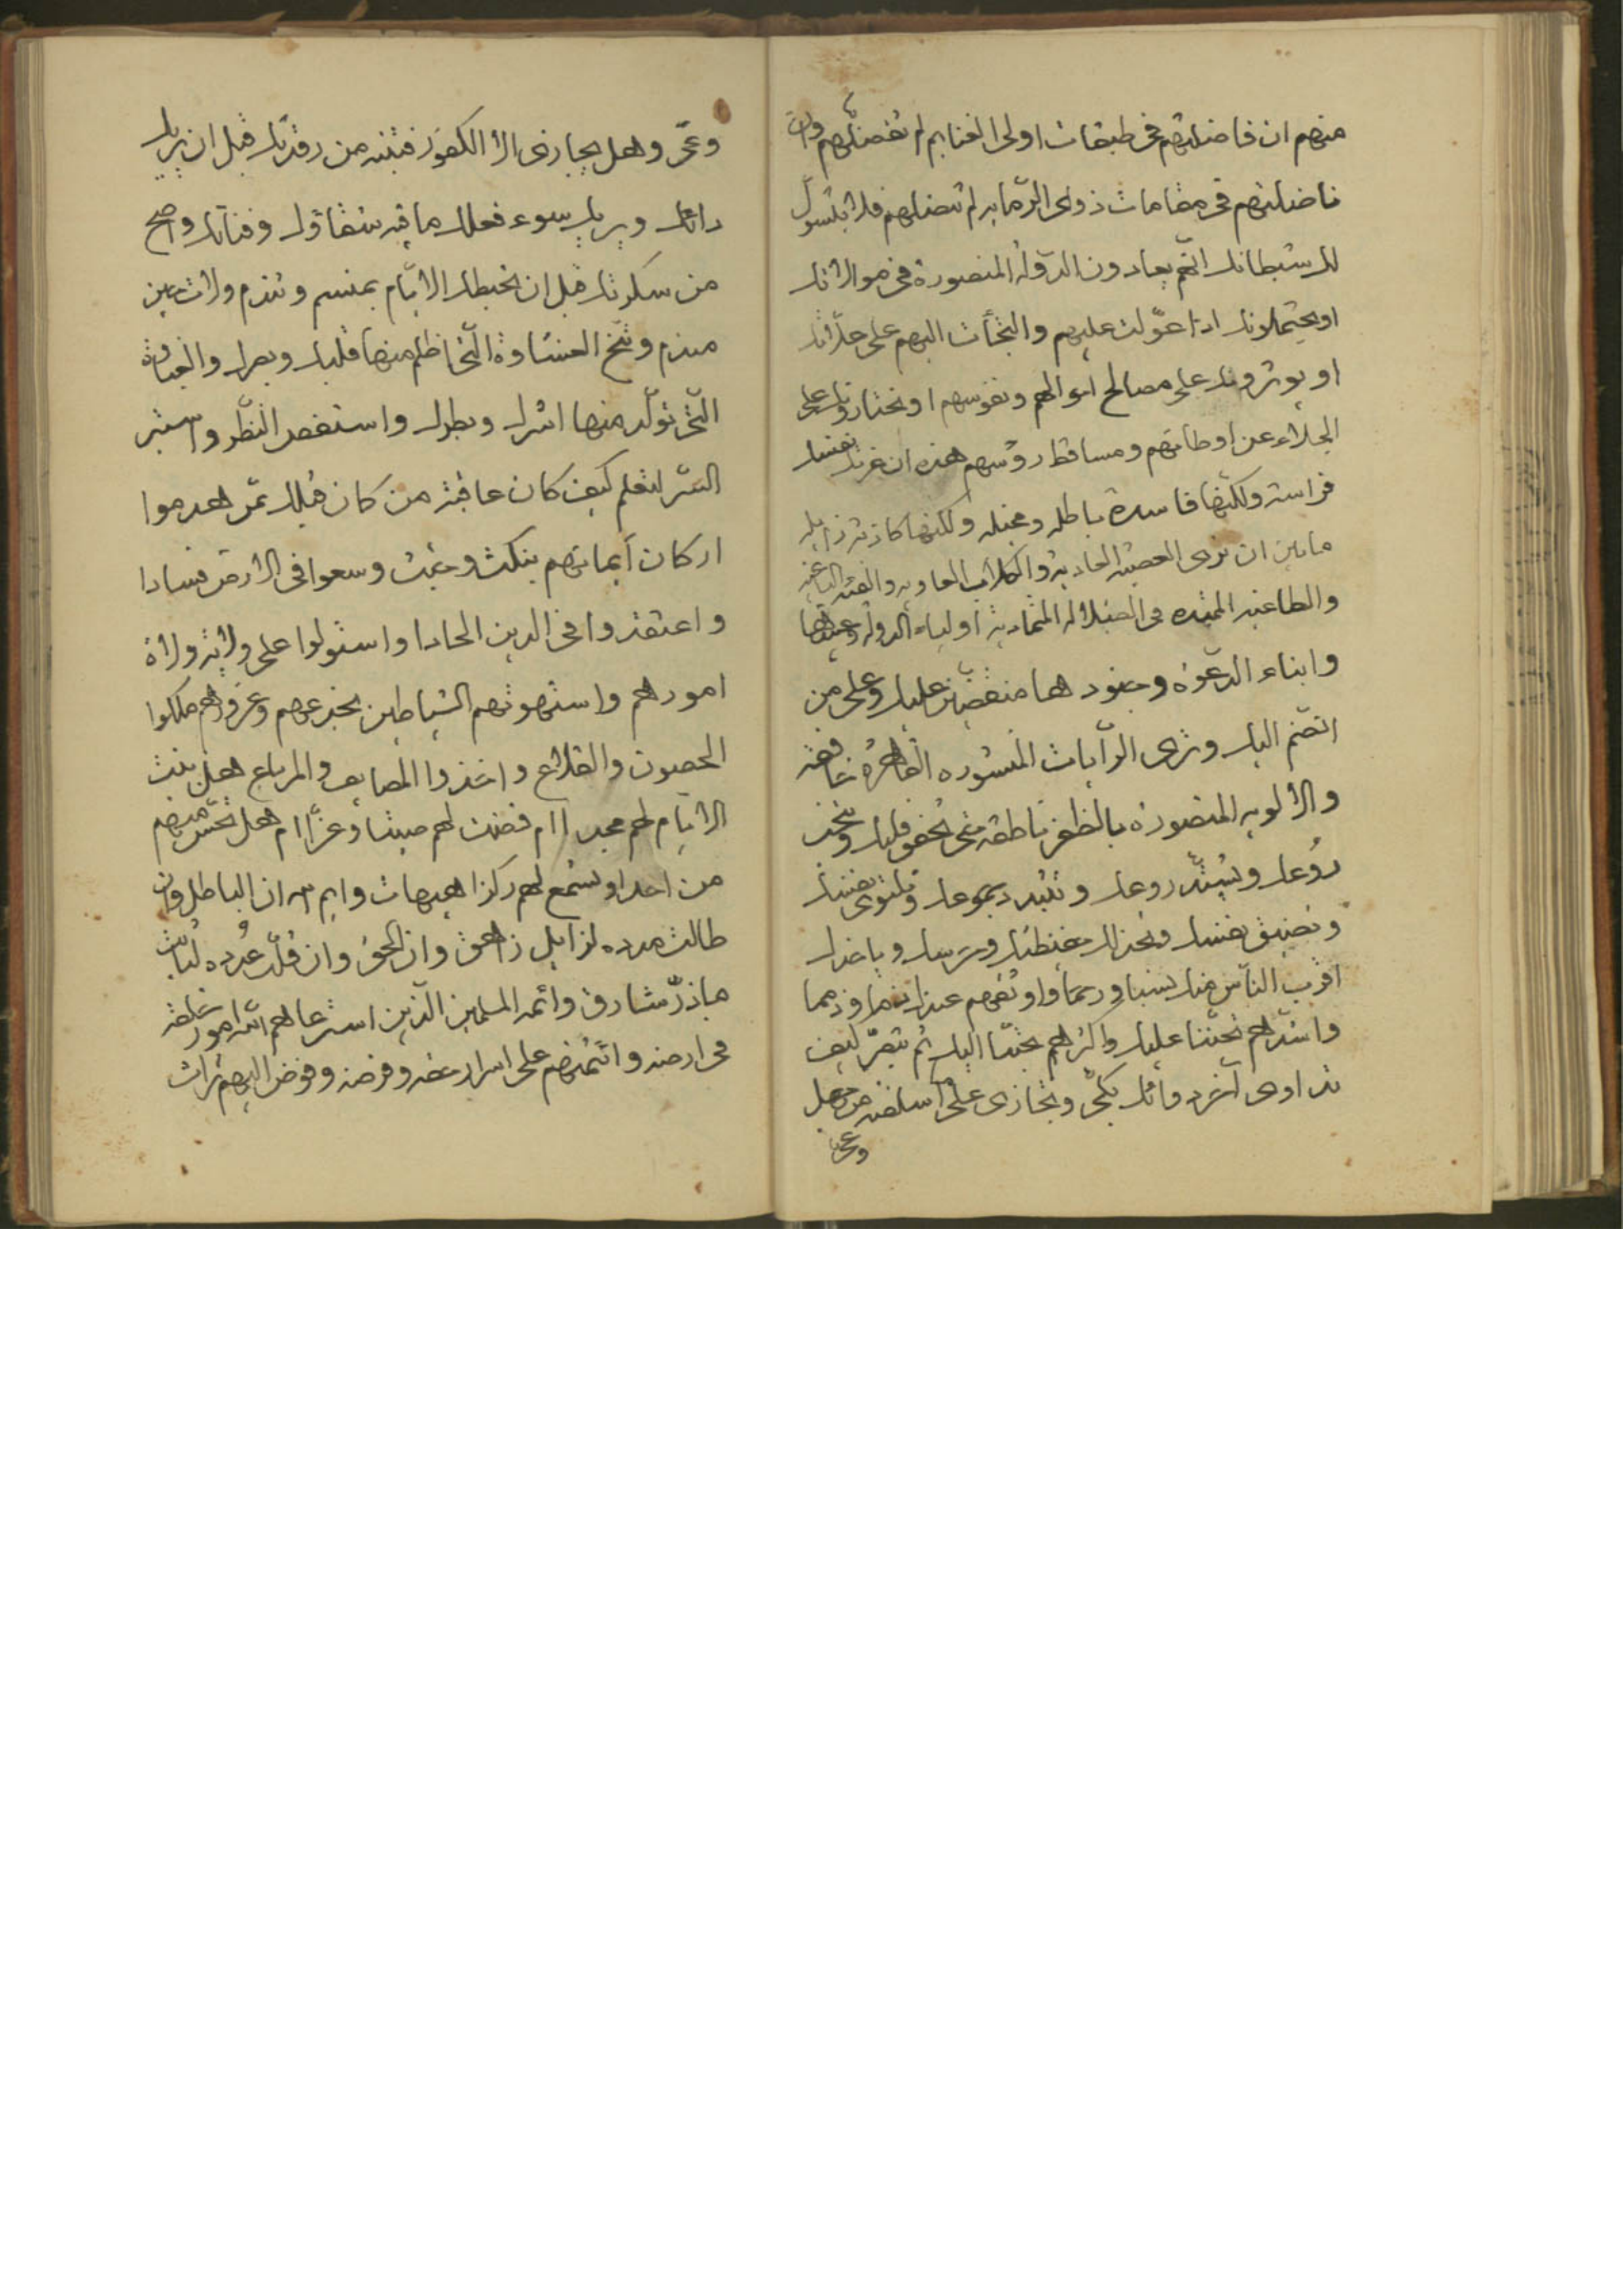 منهم ان فاضلتهم فى طبقات اولى الغنايم لم تفضلهم وان
فاضلتهم فى مقامات ذوى الرمايم لم تفضلهم فلا يسول
لك شيطانك انهم يعادون الدولة المنصورة فى موالاتك
او يحتملونك اذا عولت عليهم والتجأت اليهم على علاتك
او يوثرونك على مصالح اموالهم ونفوسهم او يختارونك على
الجلاء عن اوطانهم ومساقط رؤسهم هذه ان غرتك نفسك
فراسة ولكنها فاسدة باطله ومخيله ولكنها كاذبة زايله
مابين ان ترى العصبة العادية والكلاب العاويه والفئة الباغية
والطاغية فى الضلالة المتمادية اولياء الدولة وعبيدها
وابناء الدعوة وجنودها منقضين عليك وعلى من
انضم اليك وترى الرايات المنشوره القاهرة خافقة
والالويه المنصورة بالظفر ناطقة حتى يخفق قلبك
روعك ويشتد روعك وتبدد جموعك وتلتوى نفسك
وتضيق نفسك ويأخذك
اقرب الناس منك نسبا ورحما واوثقهم عندك ذمما
واشدهم تحننا عليك واكثرهم تحببا اليك ثم تبصر كيف
تداوى آخره دائك بكى وتجازى على اسلفته من جهل
وغى
وغى وهل يجازى الا الكفور فتنبه من رقدتك قبل ان يريك
دائك ويريك سوء فعلك ما فيه شقاؤك وفناؤك واصح
من سكرتك قبل ان تخبطك الايام بمنسم وتندم ولات حين
مندم ونح الغشاوة التى اظلم منها قلبك وبصرك والغباوة
التى تولد منها اشرك وبطرك واستقص النظر واستثر
السر لتعلم كيف كان عاقبة من كان قبلك ممن هدموا
اركان ايمانهم بنكث وخبث وسعوا فى الارض فسادا
واعتقدوا فى الدين الحادا واستولوا على ولاية ولاة
امورهم واستهوتهم الشياطين بخدعهم وغرورهم ملكوا
الحصون والقلاع واخذوا المصايف والمرباع هل بنت
الايام لهم مجدا ام قضت لهم صيتا وعزا ام هل تحس منهم
من احد او تسمع لهم ركزا هيهات وايم الله ان الباطل وان
طالت مدده لزايل زاهق وان الحق وان قلت عدده لثابت
ماذر شارق وائمه المسلمين الذين استرعاهم الله امور خلقه
فى ارضه وائتمنهم على اسرار وفرضه وفوض اليهم تراث